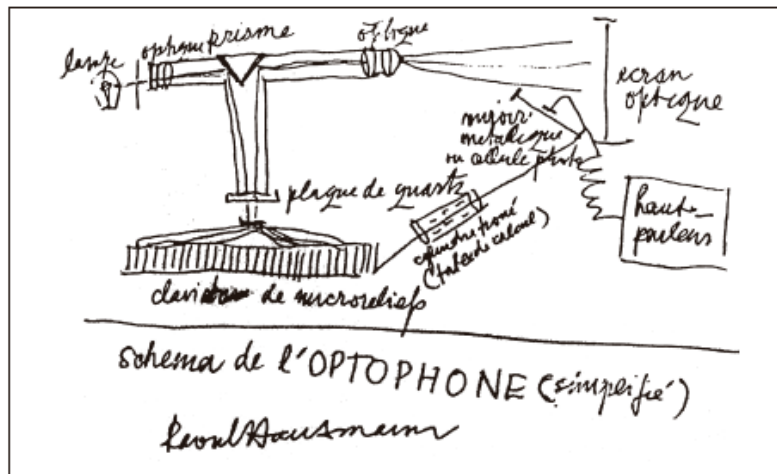 lampe
optique
prisme
optique
écran
optique
miroir
metalique
ou cellule photo
plaque de quartz
cylindre troué
(table de calcul)
haut-
parleurs
de microreliefs
schema de l'OPTOPHONE (simplifié)
Raoul Hausmann